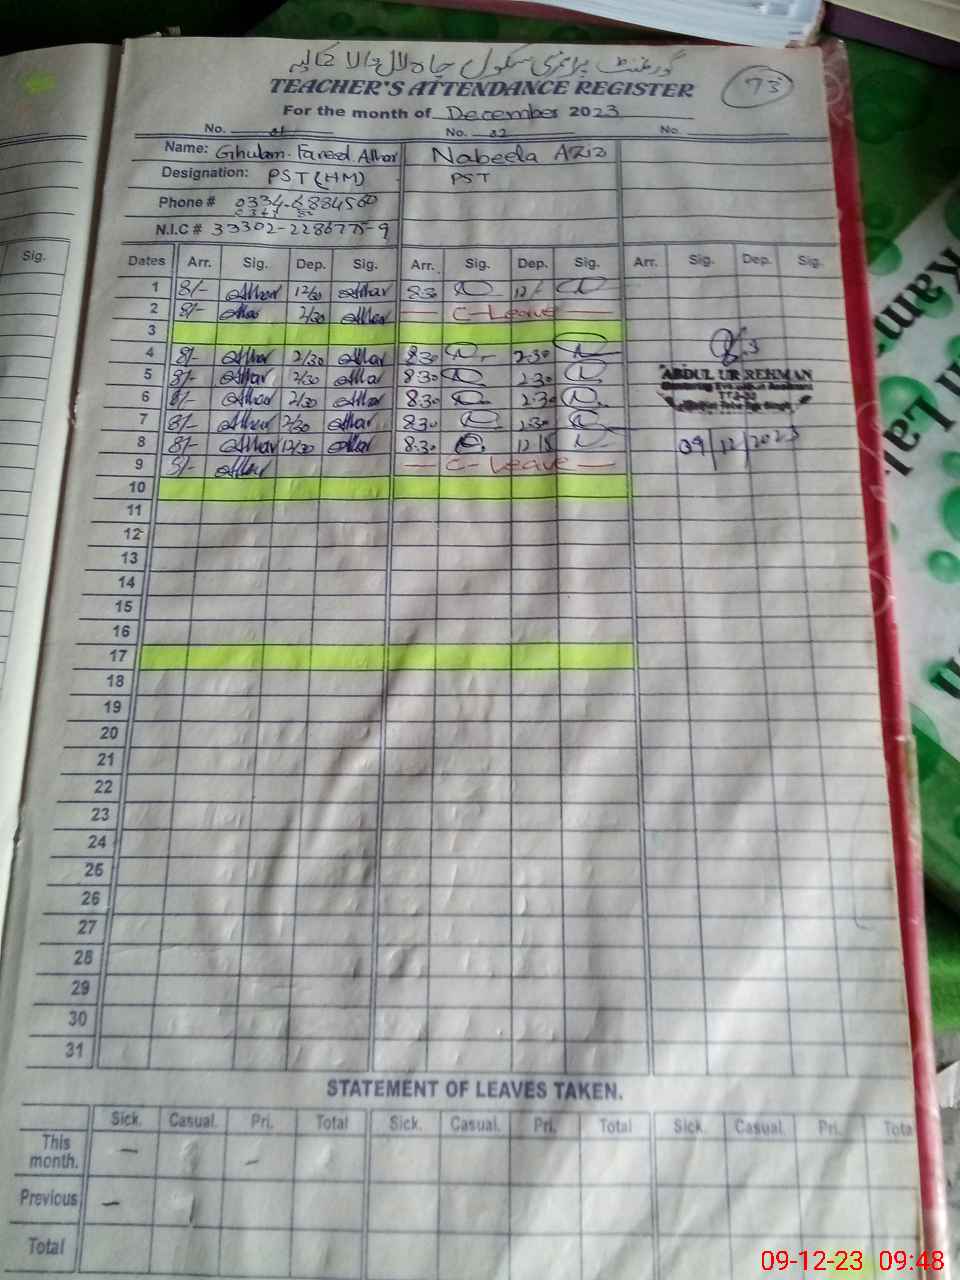 گورنمنٹ پرائمری سکول چاہ لال والا کمالیہ
TEACHER'S ATTENDANCE REGISTER
73
For the month of December 2023
No. 01 No. 02 No.
Name: Ghulam Fareed Athar Nabeela Aziz
Designation: PST (HM) PST
Phone # 0334-6884560
N.I.C # 33302-2286775-9
Dates Arr. Sig. Dep. Sig. Arr. Sig. Dep. Sig. Arr. Sig. Dep. Sig.
1 8/- Athar 12/30 Athar 8:30 12/-
2 8/- Athar 2/30 Athar C-Leave
3
4 8/- Athar 2/30 Athar 8:30 2:30
5 8/- Athar 2/30 Athar 8:30 2:30
6 8/- Athar 2/30 Athar 8:30 2:30
7 8/- Athar 2/30 Athar 8:30 2:30
8 8/- Athar 12/30 Athar 8:30 12:15
9 8/- Athar C-Leave
10
11
12
13
14
15
16
17
18
19
20
21
22
23
24
25
26
27
28
29
30
31
ABDUL UR REHMAN
09/12/2023
Sig.
STATEMENT OF LEAVES TAKEN.
Sick. Casual. Pri. Total Sick. Casual. Pri. Total Sick. Casual. Pri. Tota
This month. — 1 —
Previous — 1
Total
09-12-23 09:48